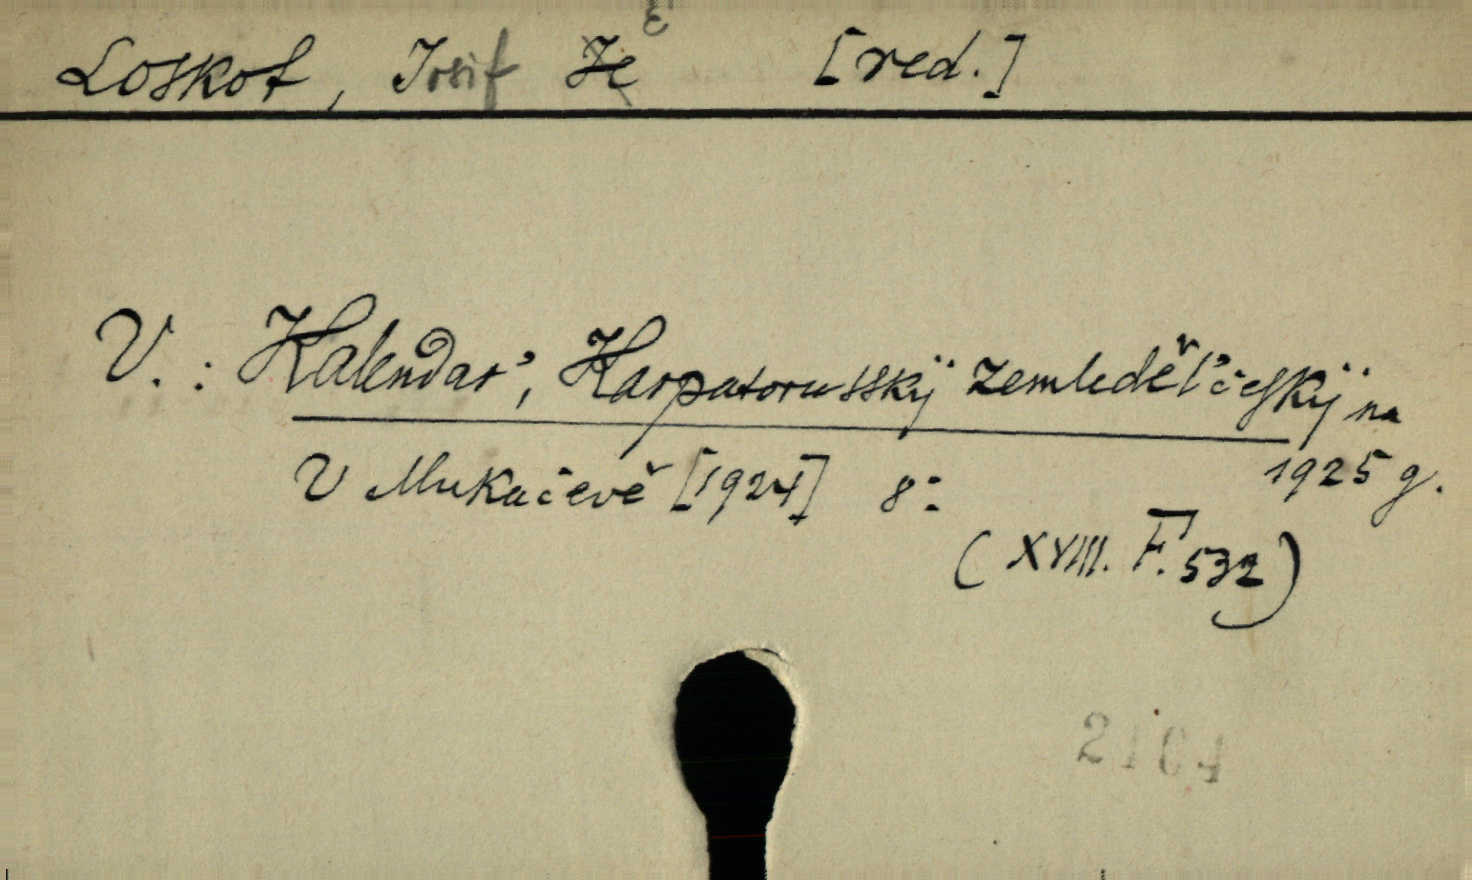 Loskot, Iosif Je [red.]
V.: Kalendar', Karpatorusskÿ zemleděl'českÿ na
1925 g.
V Mukačevě [1924] 8:
(XVIII. F. 532)